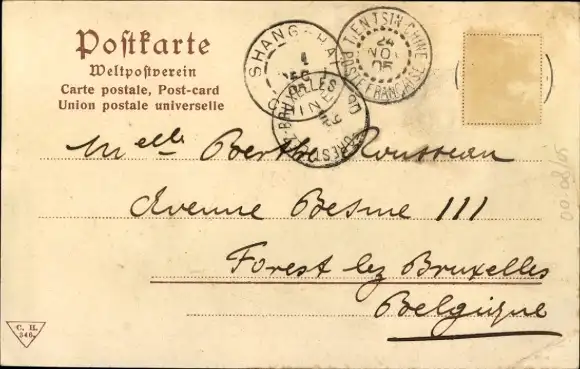 Postkarte
Weltpostverein
Carte postale, Post-card
Union postale universelle
SHANG-HAI
1
CHINE
TIEN-TSIN-CHINE
24
NO
05
POSTE FRANÇAISE
FOREST-LEZ-BRUXELLES
Melle Berthe Rousseau
Avenue Besme 111
Forest lez Bruxelles
Belgique
C. H.